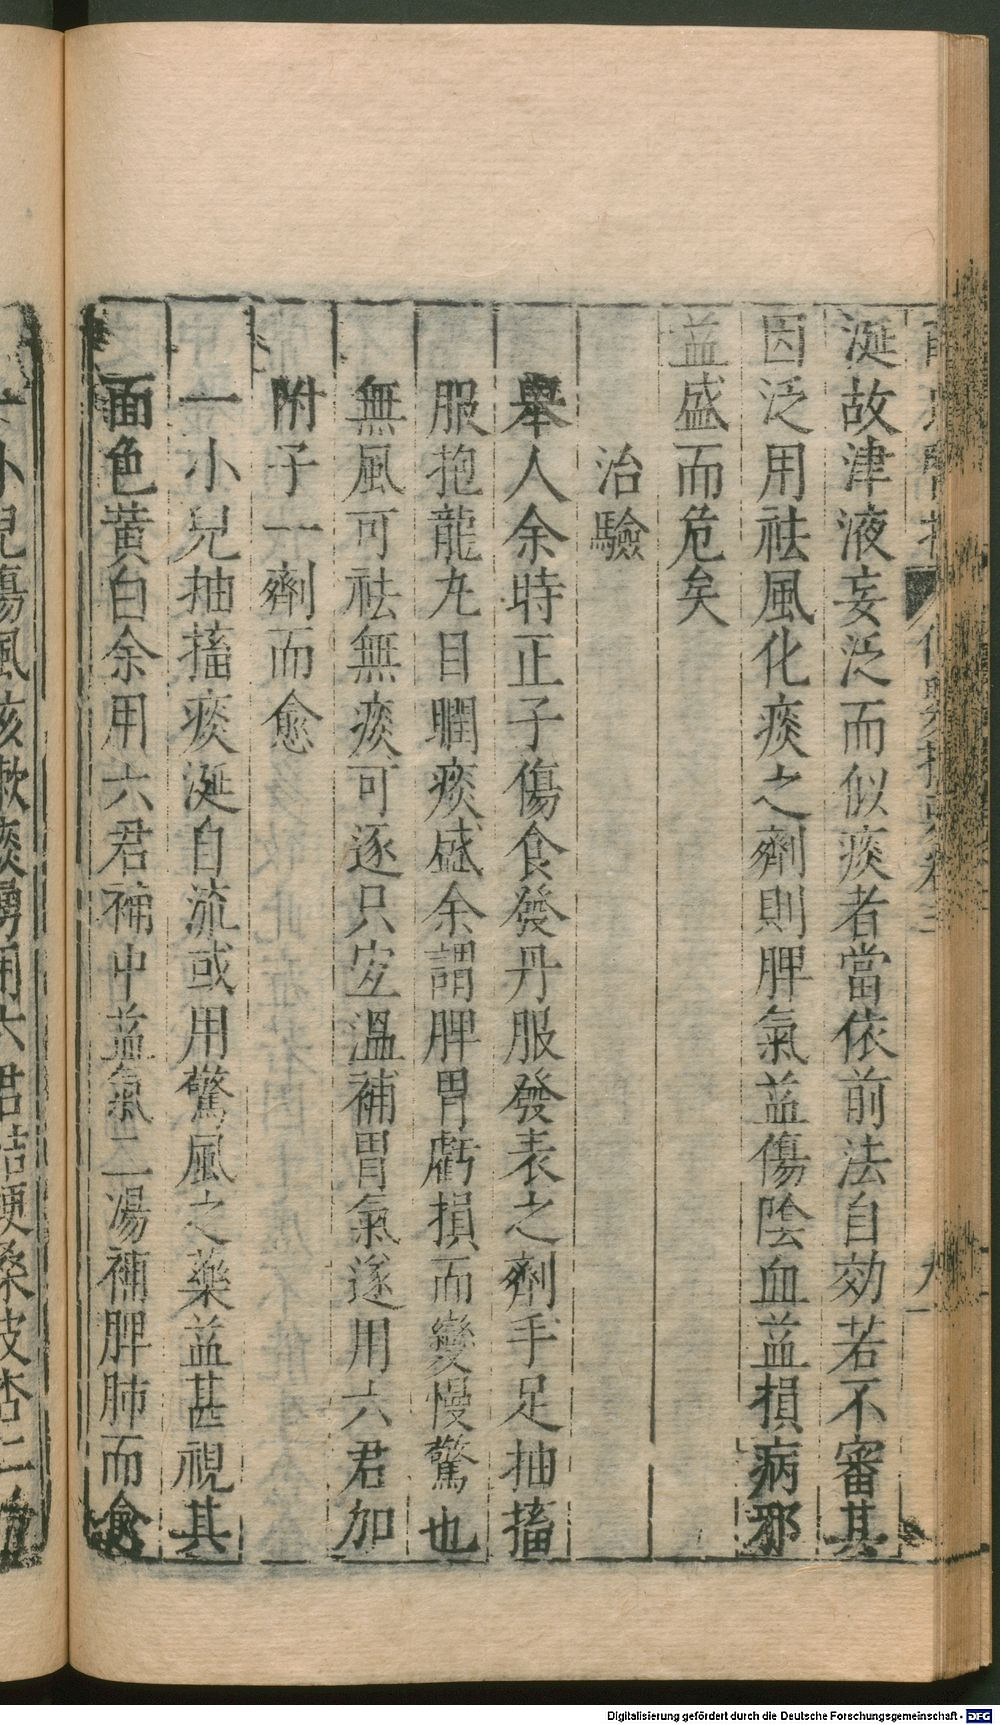 涎故津液妄泛而似痰者當依前法自効若不審其
因泛用祛風化痰之劑則脾氣益傷陰血益損病邪
益盛而危矣
治驗
舉人余時正子傷食發丹服發表之劑手足抽搐
服抱龍丸目瞤痰盛余謂脾胃虧損而變慢驚也
無風可祛無痰可逐只宐溫補胃氣遂用六君加
附子一劑而愈
一小兒抽搐痰涎自流或用驚風之藥益甚視其
面色黃白余用六君補中益氣二湯補脾肺而愈
一小兒傷風咳嗽痰湧用六君桔梗桑皮杏仁
Digitalisierung gefördert durch die Deutsche Forschungsgemeinschaft - DFG